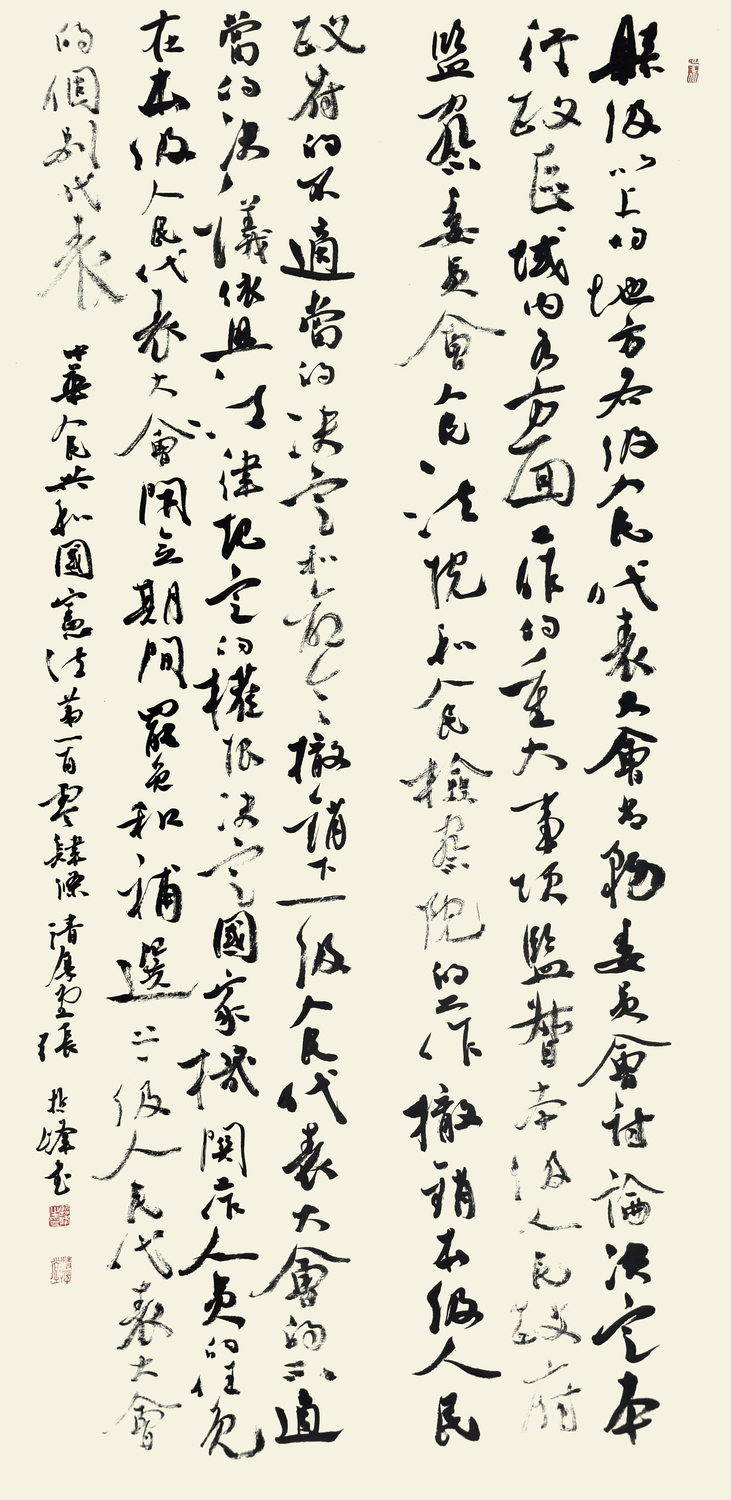 縣级以上的地方各级人民代表大會常務委員會討論决定本
行政區域内各方面工作的重大事項監督本级人民政府
監察委員會人民法院和人民檢察院的工作撤銷本级人民
政府的不適當的决定和命令撤銷下一级人民代表大會的不適
當的决議依照法律规定的權限决定國家機關工作人員的任免
在本级人民代表大會閉會期間罷免和補選上一级人民代表大會
的個别代表
中華人民共和國憲法第一百零肆條 張 峰书